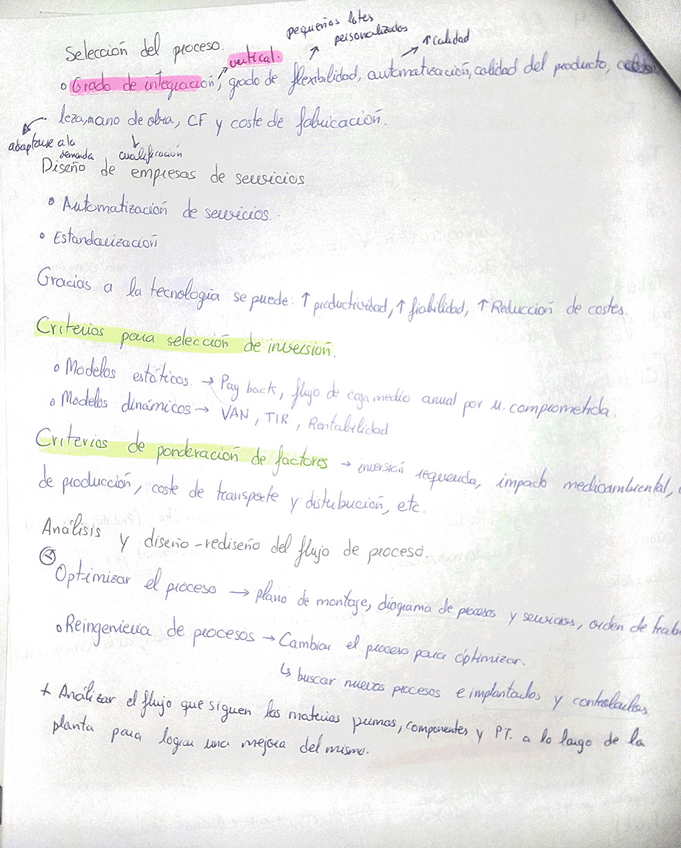 pequeños lotes
personalizados
↑ calidad
Selección del proceso.
vertical.
o Grado de integración, grado de flexibilidad, automatización, calidad del producto,
leza, mano de obra, CF y coste de fabricación.
adaptarse a la
demanda
cualificación
Diseño de empresas de servicios
• Automatización de servicios.
• Estandarización
Gracias a la tecnología se puede: ↑ productividad, ↑ fiabilidad, ↑ Reducción de costes.
Criterios para selección de inversión.
o Modelos estáticos. → Pay back, flujo de caja medio anual por u. comprometida.
o Modelos dinámicos → VAN, TIR, Rentabilidad
Criterios de ponderación de factores → inversión requerida, impacto medioambiental,
de producción, coste de transporte y distribución, etc.
Análisis y diseño-rediseño del flujo de proceso.
Optimizar el proceso → plano de montaje, diagrama de procesos y servicios, orden de trab
o Reingenieria de procesos → Cambiar el proceso para optimizar.
↳ buscar nuevos procesos e implantarlos y controlarlos
+ Analizar el flujo que siguen las materias primas, componentes y PT. a lo largo de la
planta para lograr una mejora del mismo.